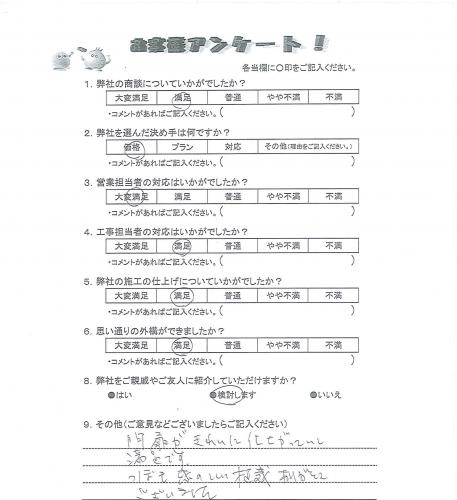 お客様アンケート！
各当欄に〇印をご記入ください。
1. 弊社の商談についていかがでしたか？
大変満足 満足 普通 やや不満 不満
・コメントがあればご記入ください。( )
2. 弊社を選んだ決め手は何ですか？
価格 プラン 対応 その他(理由をご記入ください。)
・コメントがあればご記入ください。( )
3. 営業担当者の対応はいかがでしたか？
大変満足 満足 普通 やや不満 不満
・コメントがあればご記入ください。( )
4. 工事担当者の対応はいかがでしたか？
大変満足 満足 普通 やや不満 不満
・コメントがあればご記入ください。( )
5. 弊社の施工の仕上げについていかがでしたか？
大変満足 満足 普通 やや不満 不満
・コメントがあればご記入ください。( )
6. 思い通りの外構ができましたか？
大変満足 満足 普通 やや不満 不満
・コメントがあればご記入ください。( )
8. 弊社をご親戚やご友人に紹介していただけますか？
●はい ●検討します ●いいえ
9. その他(ご意見などございましたらご記入ください)
門扉がきれいに仕上がっていて
満足です。
植栽 ありがとう
ございました